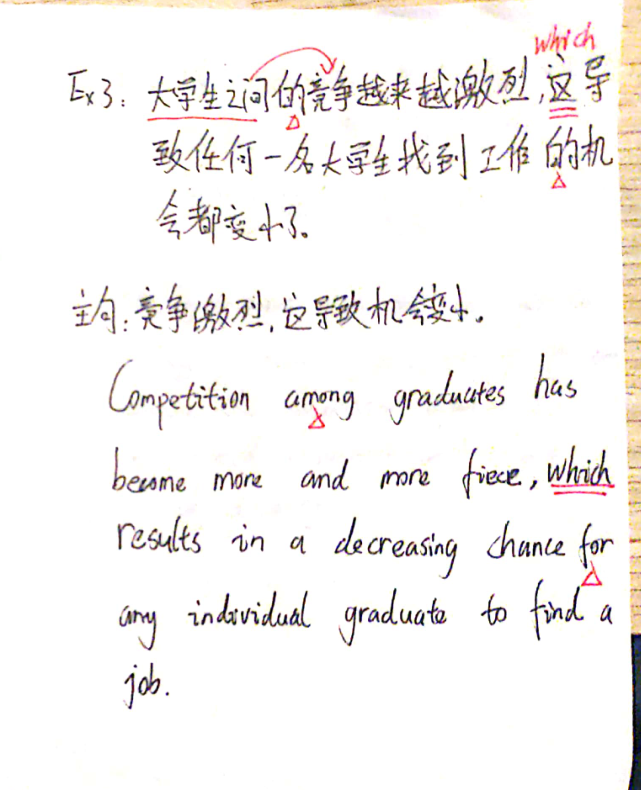 which
Ex3: 大学生之间的竞争越来越激烈,这导
致任何一名大学生找到工作的机
会都变小了。
主句:竞争激烈,这导致机会变小。
Competition among graduates has
become more and more fiece, which
results in a decreasing chance for
any individual graduate to find a
job.